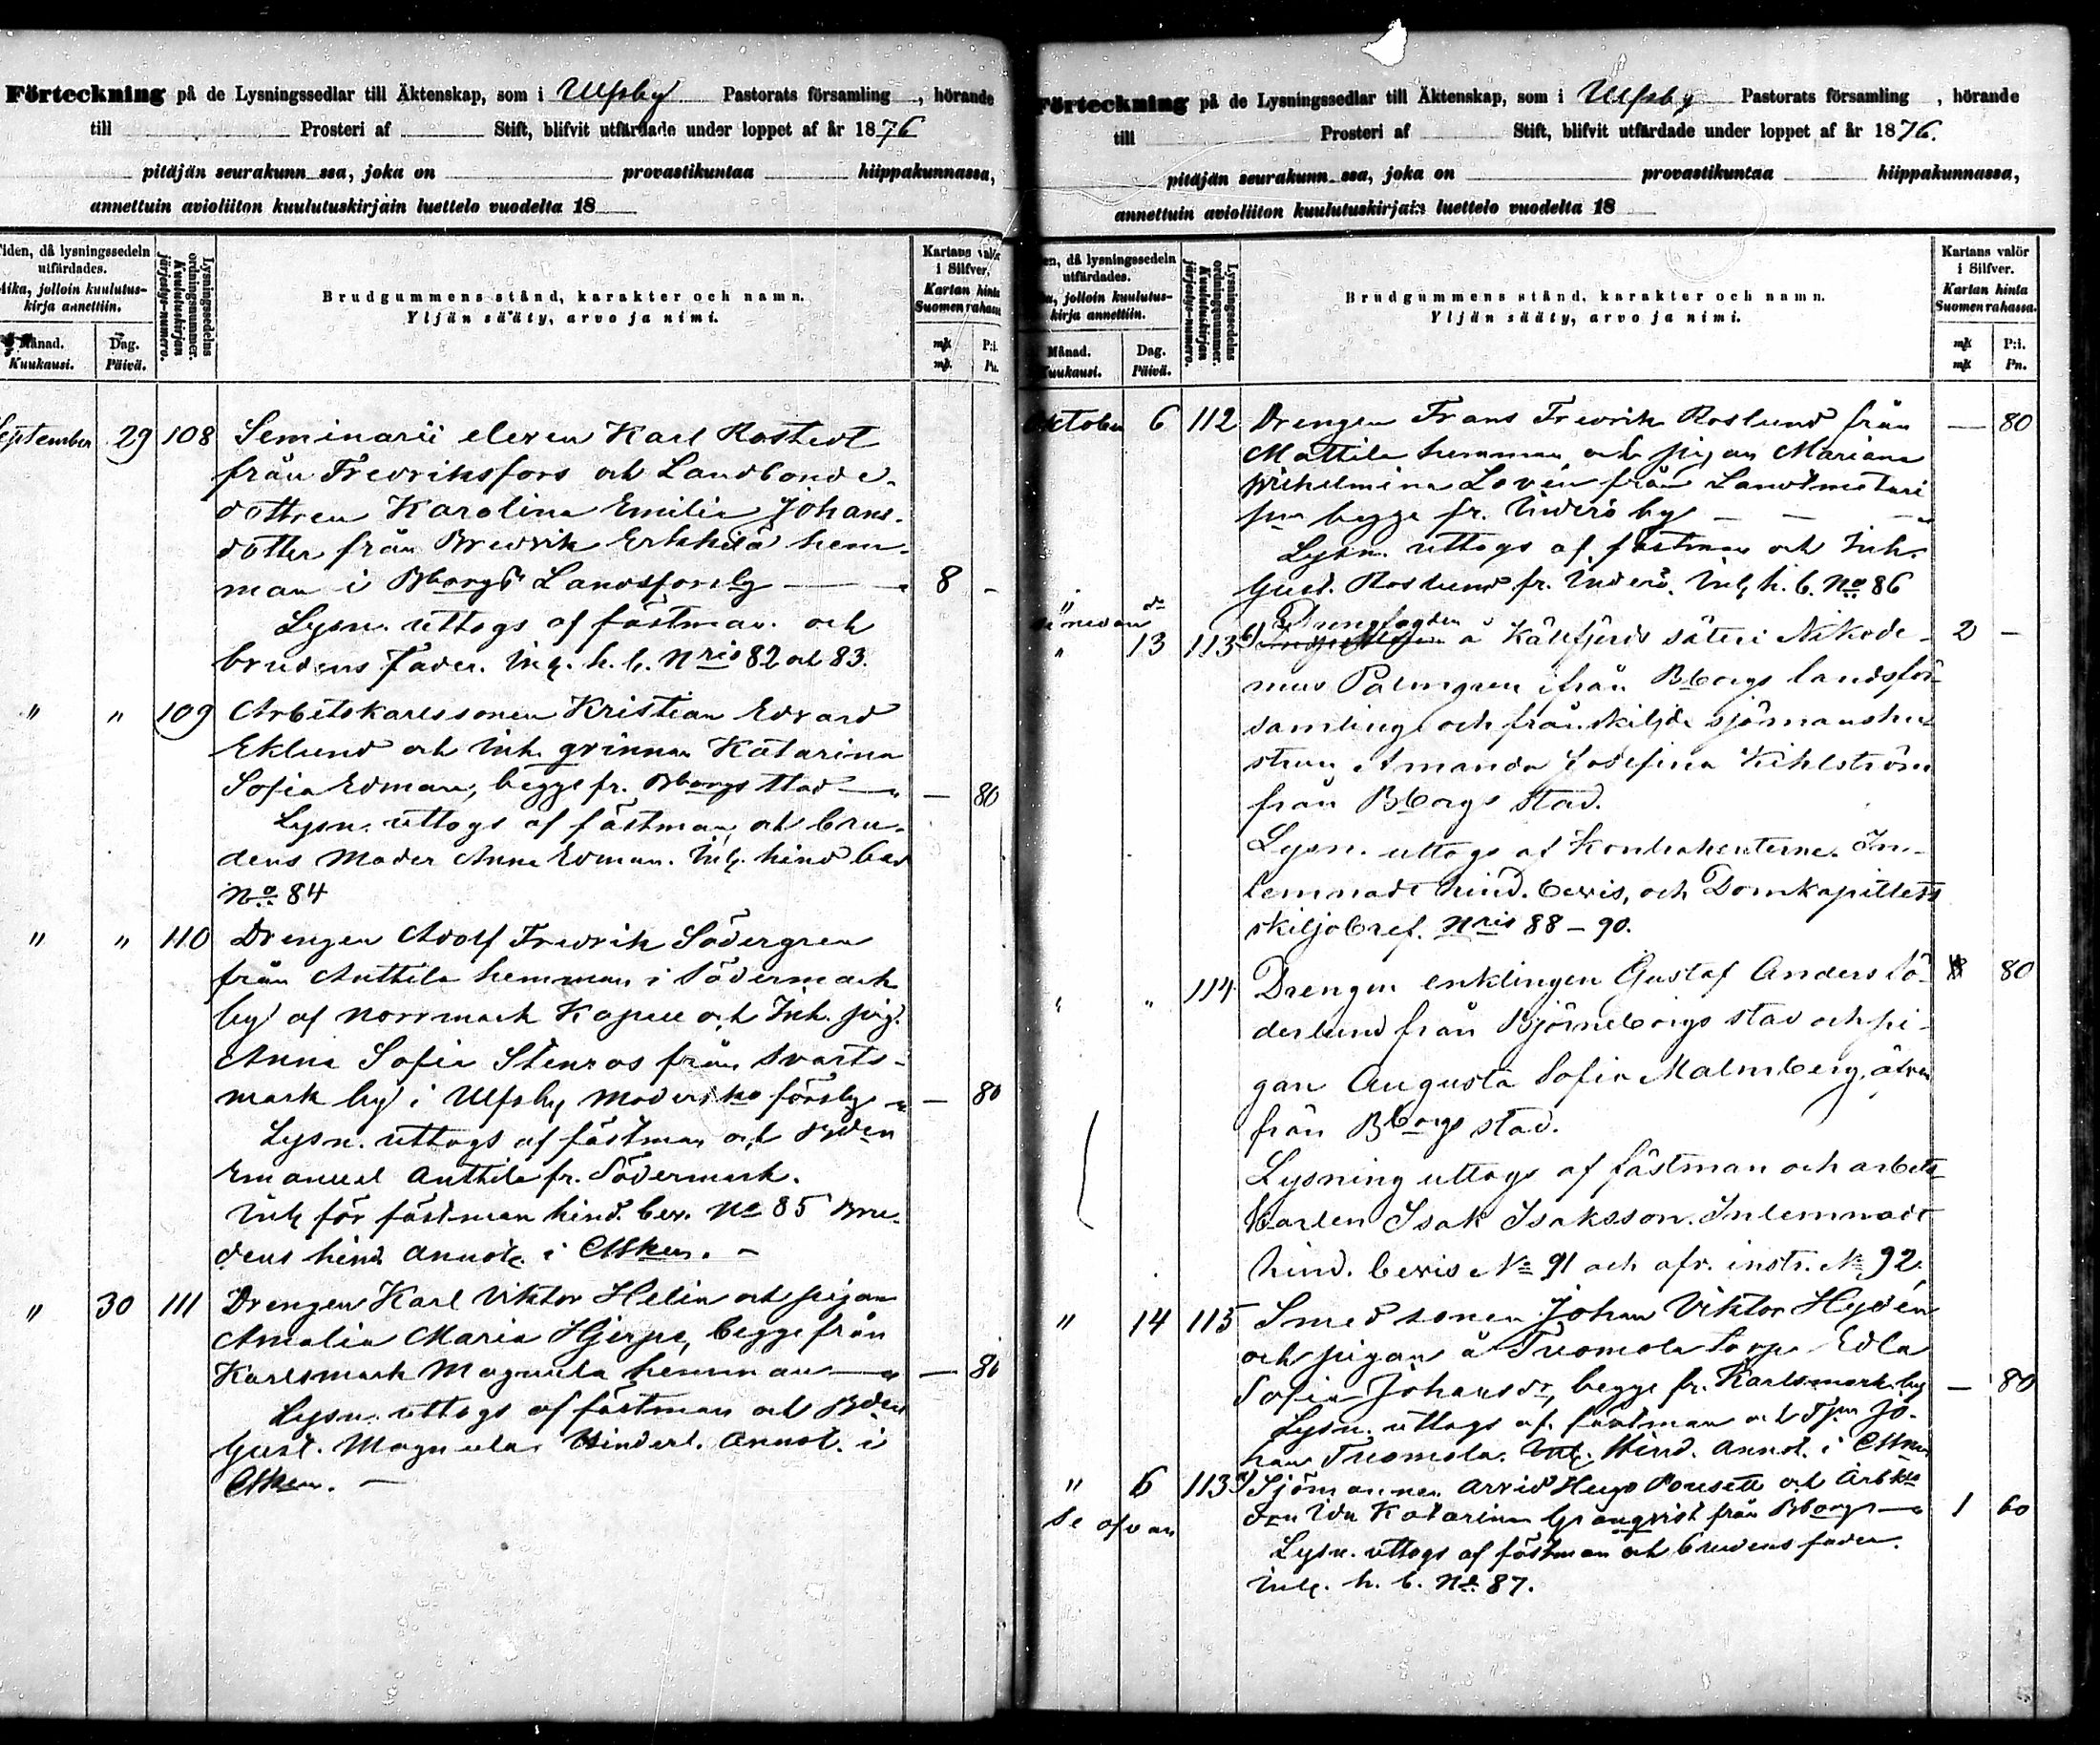 Förteckning på de Lysningssedlar till Äktenskap, som i Ulfsby Pastorats församling , hörande
till Prosteri af Stift, blifvit utfärdade under loppet af år 1876
pitäjän seurakunn ssa, joka on provastikuntaa hiippakunnassa,
annettuin avioliiton kuulutuskirjain luettelo vuodelta 18
Tiden, då lysningssedeln utfärdades.
Aika, jolloin kuulutus-kirja annettiin.
Månad. Kuukausi.
Dag. Päivä.
Lysningssedelns ordningsnummer. Kuulutuskirjan järjestys-numero.
Brudgummens stånd, karakter och namn.
Yljän sääty, arvo ja nimi.
Kartans valör i Silfver.
Kartan hinta Suomen rahassa
mk P:i.
mk. Pn.
September 29 108 Seminarii eleven Karl Rostedt
från Fredriksfors och Landbonde-
dottren Karolina Emilia Johans-
dotter från Bredvik Erkkilä hem-
man i Bborgs Landsförslg — 8 -
Lysn. uttogs af fästman och
brudens fader. Inl. h. b. Nris 82 och 83.
" " 109 Arbetskarlssonen Kristian Edvard
Eklund och Inh. qvinnan Katarina
Sofia Edman, begge fr. Bborgs stad — — 80
Lysn. uttogs af fästman och bru-
dens Moder Anna Edman. Inl. hind bev
No 84
" " 110 Drengen Adolf Fredrik Södergren
från Anttila hemman i Södermark
by af Norrmark Kapell och Inh. pig.
Anna Sofia Stenros från Svarts-
mark by i Ulfsby Moderko förslg — 80
Lysn. uttogs af fästman och Bden
Emanuel Anttila fr. Södermark.
Inl. för fästman hind. bev. No 85 Bru-
dens hind annot. i Attken. —
" 30 111 Drengen Karl Viktor Helin och pigan
Amalia Maria Hjerpe, begge från
Karlsmark Magnula hemman — — 80
Lysn. uttogs af fästman och Bden
Gust. Magnula. Hinderl. Annot. i
Attken. —
Förteckning på de Lysningssedlar till Äktenskap, som i Ulfsby Pastorats församling , hörande
till Prosteri af Stift, blifvit utfärdade under loppet af år 1876.
pitäjän seurakunn ssa, joka on provastikuntaa hiippakunnassa,
annettuin avioliiton kuulutuskirjain luettelo vuodelta 18
en, då lysningssedeln utfärdades.
jolloin kuulutus-kirja annettiin.
Månad. Kuukausi.
Dag. Päivä.
Lysningssedelns ordningsnummer. Kuulutuskirjan järjestys-numero.
Brudgummens stånd, karakter och namn.
Yljän sääty, arvo ja nimi.
Kartans valör i Silfver.
Kartan hinta Suomen rahassa.
mk P:i.
mk Pn.
Oktober 6 112 Drengen Frans Fredrik Roslund från — 80
Mattila hemman och pigan Mariana
Wilhelmina Loven från Landtmeteri
begge fr. Inderö by — — —
Lysn. uttogs af fästman och Inh.
Gust. Roslund fr. Inderö. Inl. h. b. No 86
" Se nedan
Drengfogden
" 13 113 å Källfjärds säteri Nikode- 2 —
mus Palmgren ifrån Bborgs landsför-
samling och frånskiljde sjömanshu-
strun Amanda Josefina Kihlström
från Bborgs stad.
Lysn. uttogs af Kontrahenterne. In-
lemnadt hind. bevis, och Domkapitlets
skiljobref. Nris 88 – 90.
" " 114 Drengen enklingen Gustaf Anders Sö- 80
derlund från Björneborgs stad och pi-
gan Augusta Sofia Malmberg, äfven
från Bborgs stad.
Lysning uttogs af fästman och arbets
karlen Isak Isaksson. Inlemnadt
hind. bevis No 91 och afv. instr. No 92.
" 14 115 Smedsonen Johan Viktor Hydén
och pigan å Tuomola torp Edla
Sofia Johansdr, begge fr. Karlsmark by — 80
Lysn. uttogs af fästman och Jo-
han Tuomola. Inl. Hind. annot. i Attken
" 6 113 Sjömannen Arvid Hugo Pousette och Arbks
dtrn Ida Katarina Granqvist från Bborgs — 1 60
Se ofvan
Lysn. uttogs af fästman och brudens fader.
Inl. h. b. No 87.